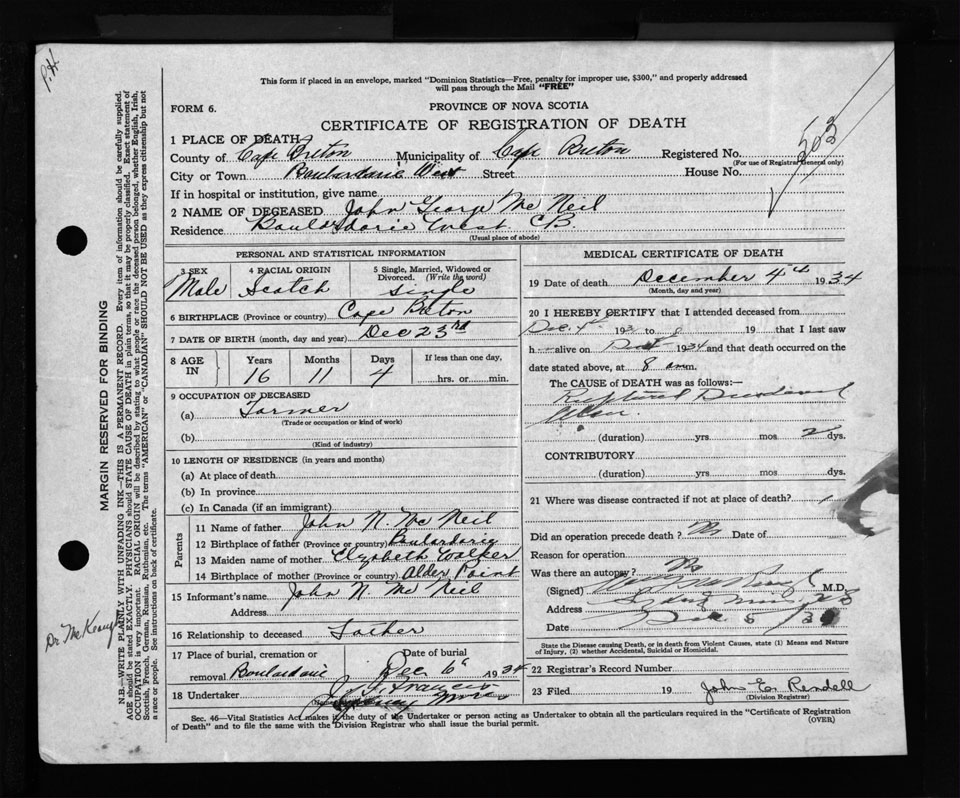 P.H
This form if placed in an envelope, marked "Dominion Statistics—Free, penalty for improper use, $300," and properly addressed
will pass through the Mail "FREE"
FORM 6.
PROVINCE OF NOVA SCOTIA
CERTIFICATE OF REGISTRATION OF DEATH
1 PLACE OF DEATH
County of Cape Breton Municipality of Cape Breton Registered No.
(For use of Registrar General only)
City or Town Boulardarie West Street House No.
If in hospital or institution, give name
2 NAME OF DECEASED John George Mc Neil
Residence Boulardarie West C.B.
(Usual place of abode)
PERSONAL AND STATISTICAL INFORMATION
3 SEX 4 RACIAL ORIGIN 5 Single, Married, Widowed or
Divorced. (Write the word)
Male Scotch Single
6 BIRTHPLACE (Province or country) Cape Breton
7 DATE OF BIRTH (month, day and year) Dec 23rd
8 AGE IN Years Months Days If less than one day,
16 11 4 hrs. or min.
9 OCCUPATION OF DECEASED
(a) Farmer
(Trade or occupation or kind of work)
(b)
(Kind of industry)
10 LENGTH OF RESIDENCE (in years and months)
(a) At place of death
(b) In province
(c) In Canada (if an immigrant)
Parents
11 Name of father John N. Mc Neil
12 Birthplace of father (Province or country) Boulardarie
13 Maiden name of mother Elyzabeth Walker
14 Birthplace of mother (Province or country) Alder Point
15 Informant's name John N. Mc Neil
Address
16 Relationship to deceased Father
17 Place of burial, cremation or Date of burial
removal Boulardarie Dec 6 1934
18 Undertaker
MEDICAL CERTIFICATE OF DEATH
19 Date of death December 4th 1934
(Month, day and year)
20 I HEREBY CERTIFY that I attended deceased from
Dec 4 193 to 19 that I last saw
h alive on 1934 and that death occurred on the
date stated above, at 8 a.m.
The CAUSE OF DEATH was as follows:—
Ruptured Duodenal
Ulcer.
(duration) yrs mos 2 dys.
CONTRIBUTORY
(duration) yrs. mos. dys.
21 Where was disease contracted if not at place of death?
Did an operation precede death? No Date of
Reason for operation
Was there an autopsy? No
(Signed) M.D.
Address
Date Dec 5 /34
State the Disease causing Death, or in death from Violent Causes, state (1) Means and Nature
of Injury, (2) whether Accidental, Suicidal or Homicidal.
22 Registrar's Record Number
23 Filed 19 John E. Rendell
(Division Registrar)
Sec. 46—Vital Statistics Act makes it the duty of the Undertaker or person acting as Undertaker to obtain all the particulars required in the "Certificate of Registration
of Death" and to file the same with the Division Registrar who shall issue the burial permit.
(OVER)
MARGIN RESERVED FOR BINDING
N.B.—WRITE PLAINLY WITH UNFADING INK—THIS IS A PERMANENT RECORD. Every item of information should be carefully supplied.
AGE should be stated EXACTLY. PHYSICIANS should STATE CAUSE OF DEATH in plain terms, so that it may be properly classified. Exact statement of
OCCUPATION is very important. RACIAL ORIGIN will be described by stating to what people or race the deceased person belonged, whether English, Irish,
Scottish, French, German, Russian, Ruthenian, etc. The terms "AMERICAN" or "CANADIAN" SHOULD NOT BE USED as they express citizenship but not
a race or people. See instructions on back of certificate.